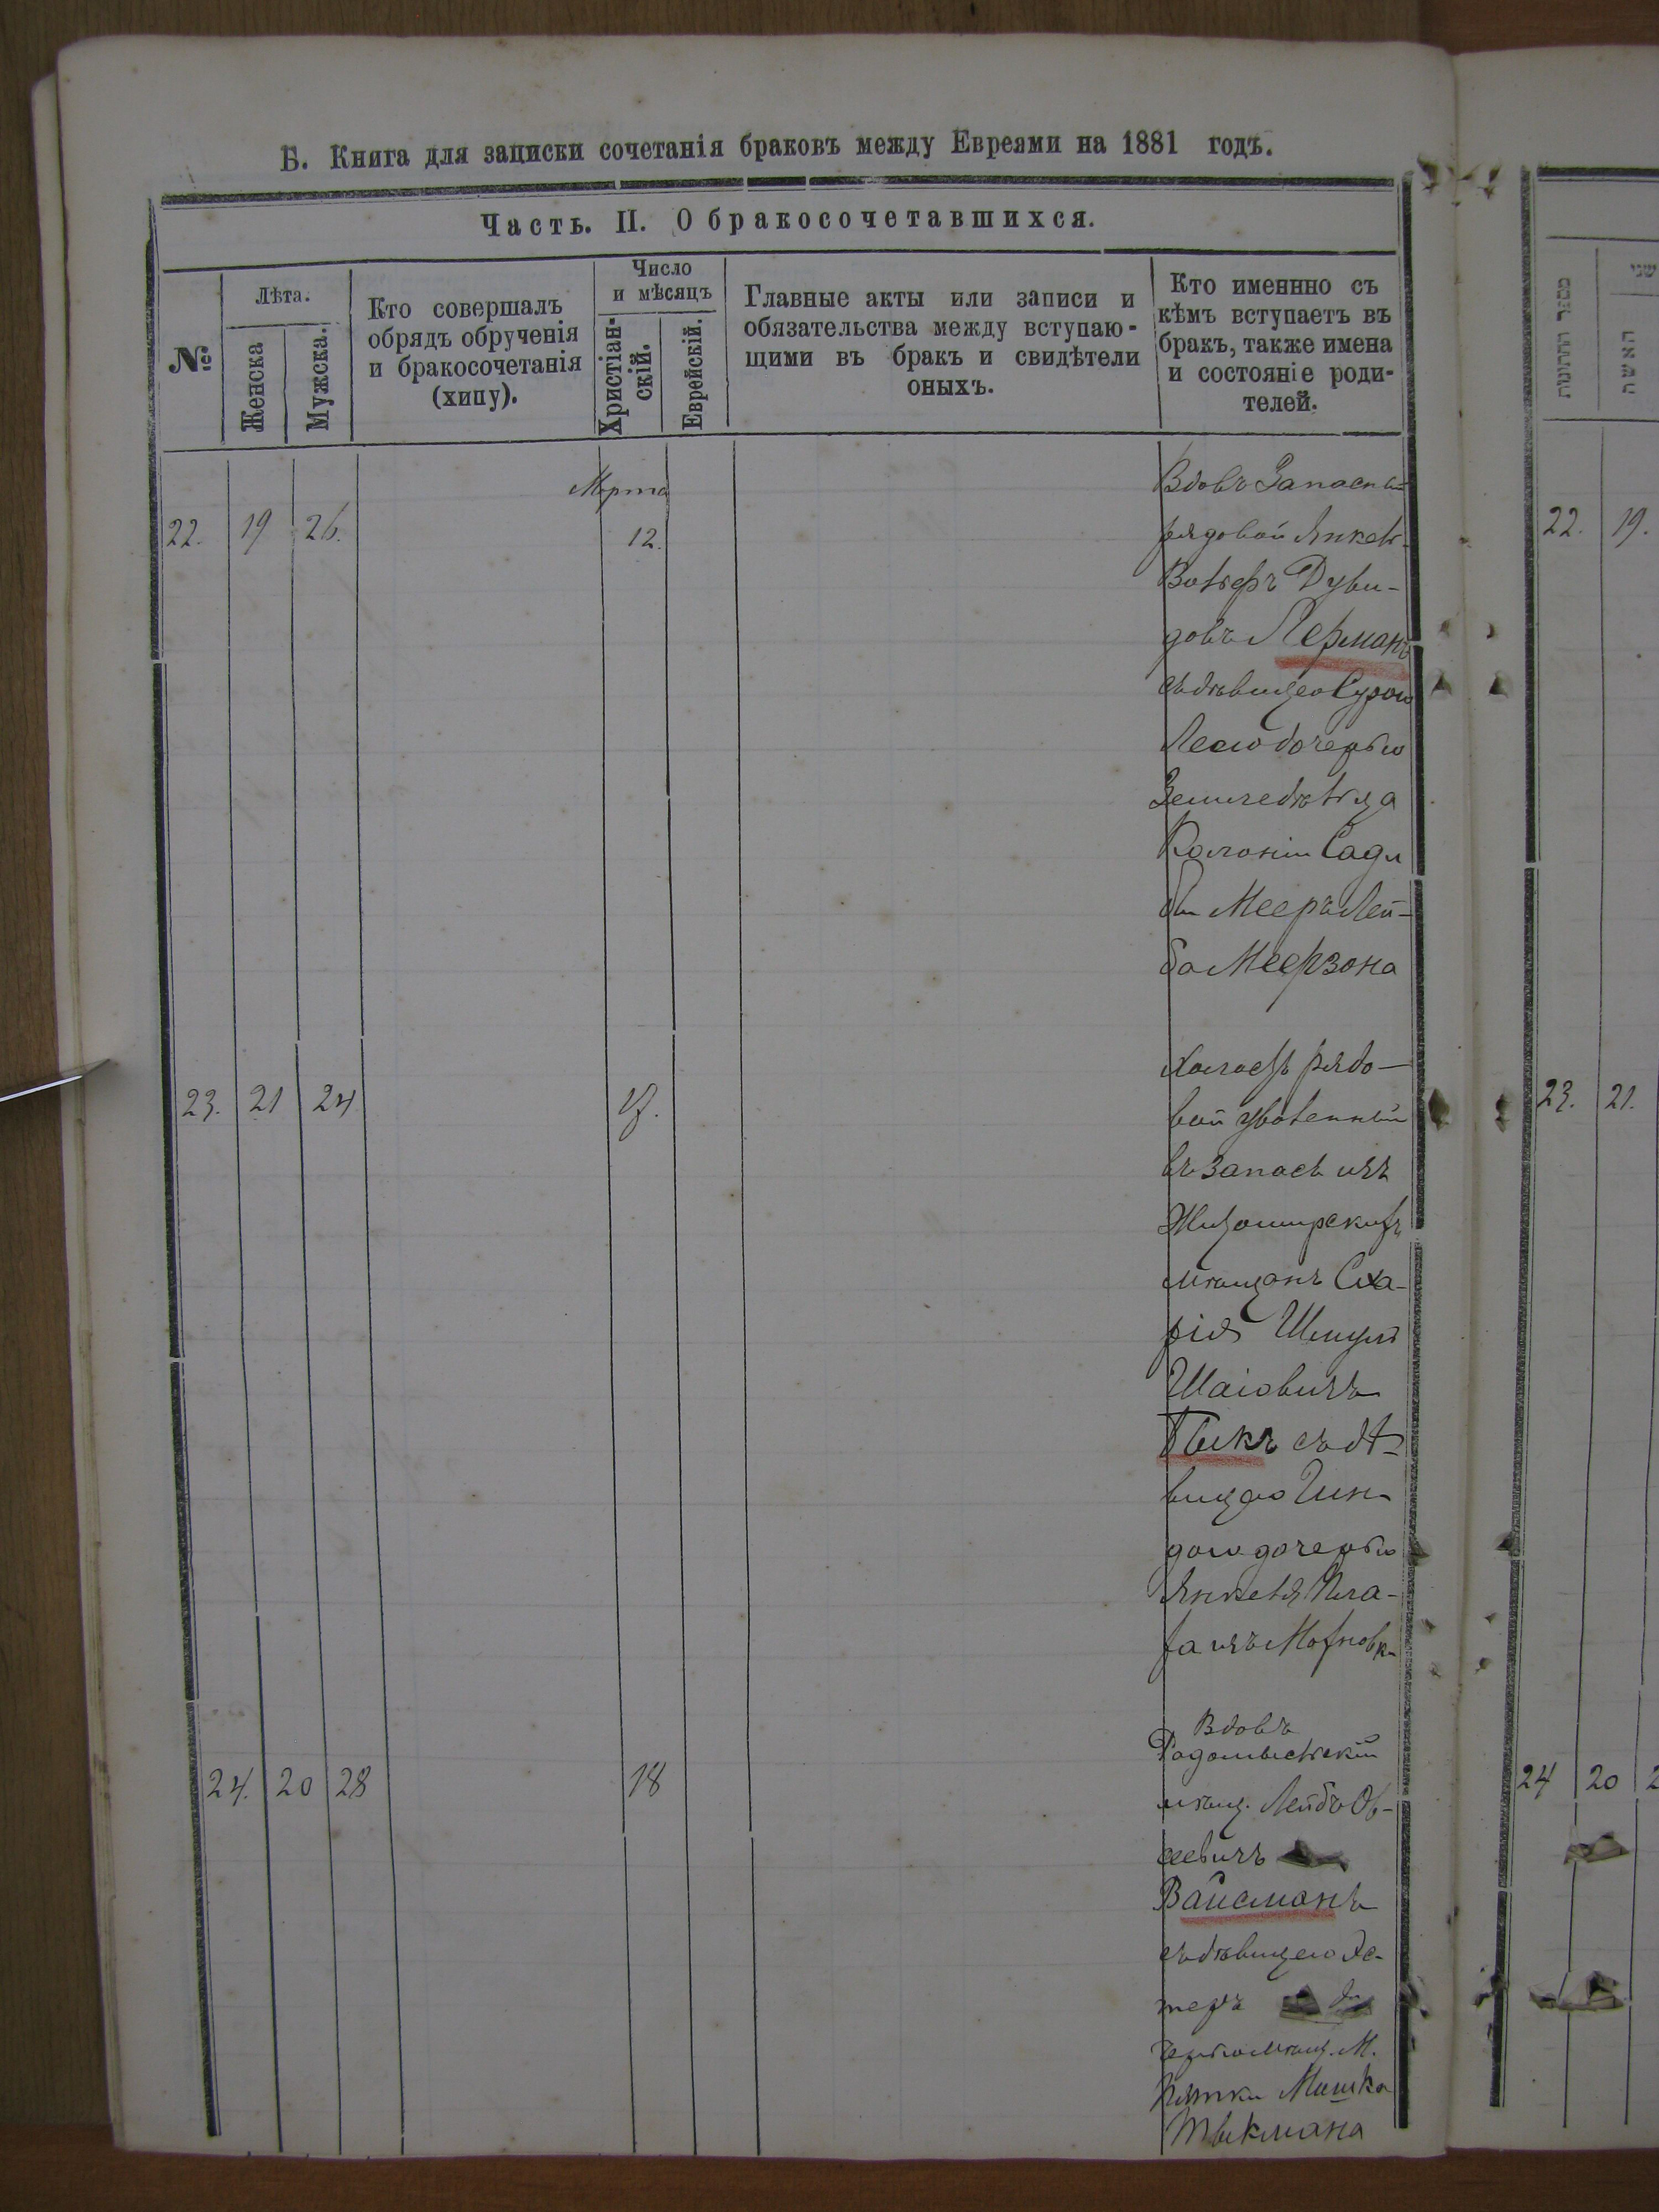 Б. Книга для записки сочетанія браковъ между Евреями на 1881 годъ.
Часть. II. О бракосочетавшихся.
№
Лѣта.
Женска
Мужска.
Кто совершалъ
обрядъ обрученія
и бракосочетанія
(хипу).
Число
и мѣсяцъ
Христіан-
скій.
Еврейскій.
Главные акты или записи и
обязательства между вступаю-
щими въ бракъ и свидѣтели
оныхъ.
Кто именнно съ
кѣмъ вступаетъ въ
бракъ, также имена
и состояніе роди-
телей.
Марта
22. 19 26. 12.
Вдовъ Запасны
рядовой Янкель
Вольфъ Дуви-
довъ Лерманъ
съ дѣвицею Сурою
Леею дочерью
Земледѣльца
Колоніи Сад
Мееръ Лей-
ба Меерзона
23. 21 24
Холостъ рядо-
вой уволенный
въ запасъ изъ
Житомирскихъ
мѣщанъ Сха-
рія Шмуль
Шаіовичъ
Быкъ съ дѣ-
вицею Гин-
дою дочерью
Янкеля
изъ
24. 20 28 18
Вдовъ
Радомысльскій
мѣщ. Лейбъ Ов-
сеевичъ
Вайсманъ
съ дѣвицею Эс-
теръ до
черью мѣщ. М.
Пятки Мошка
22. 19.
23. 21.
24 20
האשה